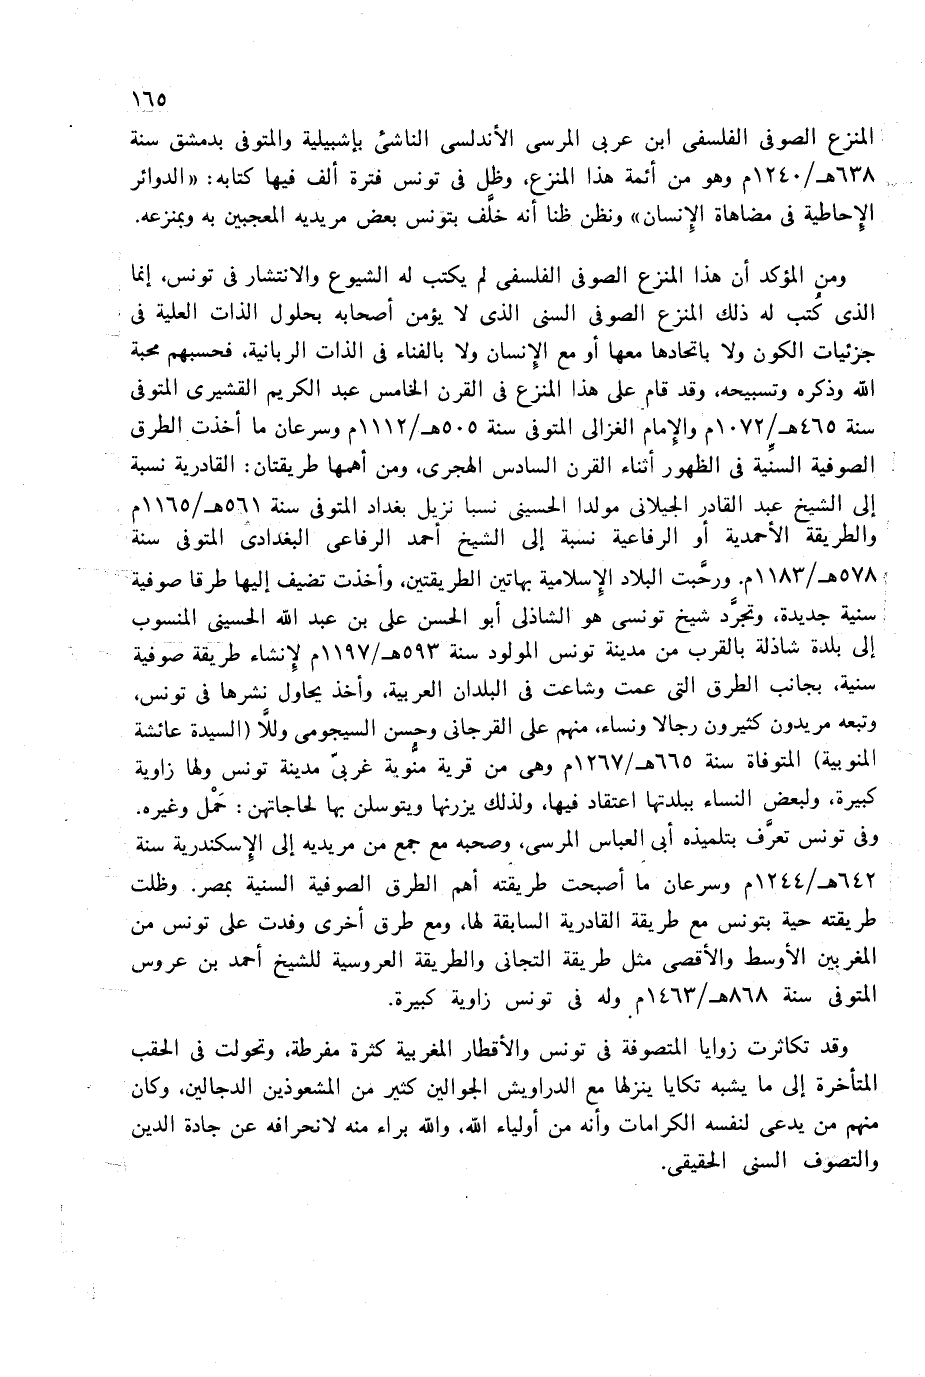 ١٦٥
المنزع الصوفى الفلسفى ابن عربى المرسى الأندلسى الناشئ بإشبيلية والمتوفى بدمشق سنة
٦٣٨هـ/١٢٤٠م وهو من أئمة هذا المنزع، وظل فى تونس فترة ألف فيها كتابه: «الدوائر
الإحاطية فى مضاهاة الإنسان» ونظن ظنا أنه خلَّف بتونس بعض مريديه المعجبين به وبمنزعه.
ومن المؤكد أن هذا المنزع الصوفى الفلسفى لم يكتب له الشيوع والانتشار فى تونس، إنما
الذى كُتب له ذلك المنزع الصوفى السنى الذى لا يؤمن أصحابه بحلول الذات العلية فى
جزئيات الكون ولا باتحادها معها أو مع الإنسان ولا بالفناء فى الذات الربانية، فحسبهم محبة
الله وذكره وتسبيحه، وقد قام على هذا المنزع فى القرن الخامس عبد الكريم القشيرى المتوفى
سنة ٤٦٥هـ/١٠٧٢م والإمام الغزالى المتوفى سنة ٥٠٥هـ/١١١٢م وسرعان ما أخذت الطرق
الصوفية السنِّية فى الظهور أثناء القرن السادس الهجرى، ومن أهمها طريقتان: القادرية نسبة
إلى الشيخ عبد القادر الجيلانى مولدا الحسينى نسبا نزيل بغداد المتوفى سنة ٥٦١هـ/١١٦٥م
والطريقة الأحمدية أو الرفاعية نسبة إلى الشيخ أحمد الرفاعى البغدادى المتوفى سنة
٥٧٨هـ/١١٨٣م. ورحَّبت البلاد الإسلامية بهاتين الطريقتين، وأخذت تضيف إليها طرقا صوفية
سنية جديدة، وتجرَّد شيخ تونسى هو الشاذلى أبو الحسن على بن عبد الله الحسينى المنسوب
إلى بلدة شاذلة بالقرب من مدينة تونس المولود سنة ٥٩٣هـ/١١٩٧م لإنشاء طريقة صوفية
سنية، بجانب الطرق التى عمت وشاعت فى البلدان العربية، وأخذ يحاول نشرها فى تونس،
وتبعه مريدون كثيرون رجالا ونساء، منهم على القرجانى وحسن السيجومى وللَّا (السيدة عائشة
المنوبية) المتوفاة سنة ٦٦٥هـ/١٢٦٧م وهى من قرية منُّوبة غربىّ مدينة تونس ولها زاوية
كبيرة، ولبعض النساء ببلدتها اعتقاد فيها، ولذلك يزرنها ويتوسلن بها لحاجاتهن: حَمْل وغيره.
وفى تونس تعرَّف بتلميذه أبى العباس المرسى، وصحبه مع جمع من مريديه إلى الإسكندرية سنة
٦٤٢هـ/١٢٤٤م وسرعان ما أصبحت طريقته أهم الطرق الصوفية السنية بمصر. وظلت
طريقته حية بتونس مع طريقة القادرية السابقة لها، ومع طرق أخرى وفدت على تونس من
المغربين الأوسط والأقصى مثل طريقة التجانى والطريقة العروسية للشيخ أحمد بن عروس
المتوفى سنة ٨٦٨هـ/١٤٦٣م وله فى تونس زاوية كبيرة.
وقد تكاثرت زوايا المتصوفة فى تونس والأقطار المغربية كثرة مفرطة، وتحولت فى الحقب
المتأخرة إلى ما يشبه تكايا ينزلها مع الدراويش الجوالين كثير من المشعوذين الدجالين، وكان
منهم من يدعى لنفسه الكرامات وأنه من أولياء الله، والله براء منه لانحرافه عن جادة الدين
والتصوف السنى الحقيقى.